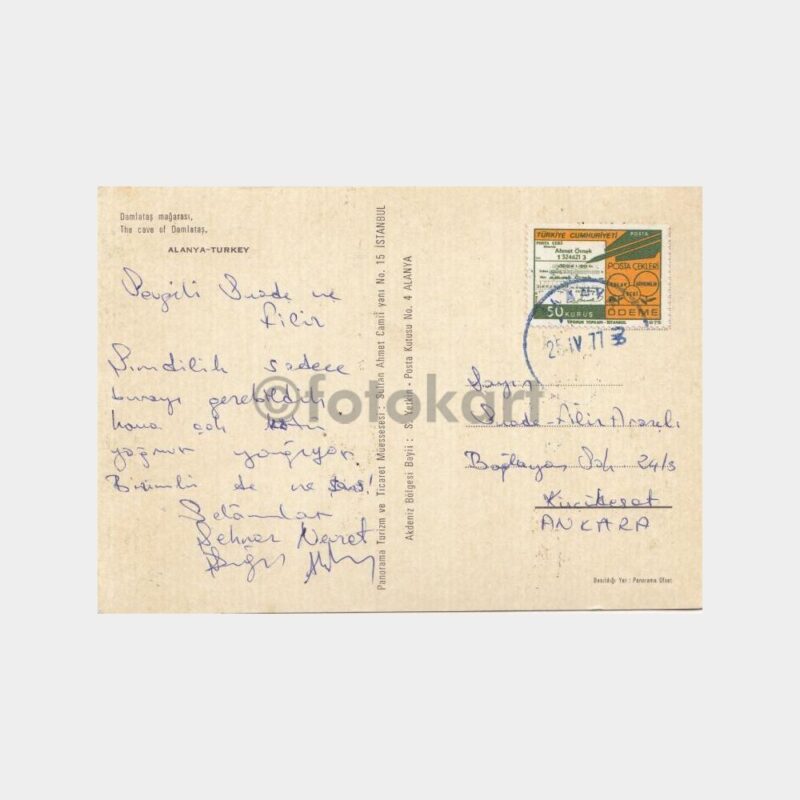 Damlataş mağarası,
The cave of Damlataş,
ALANYA-TURKEY
Sevgili Suade ve
Filiz
Şimdilik sadece
burayı gezebildik
hava çok
yağmur yağıyor
Bizimki de ne şans!
Selâmlar
Panorama Turizm ve Ticaret Müessesesi : Sultan Ahmet Camii yanı No. 15 İSTANBUL
Akdeniz Bölgesi Bayii : S. Yetkin - Posta Kutusu No. 4 ALANYA
TÜRKİYE CUMHURİYETİ POSTA
POSTA ÇEKİ
Ahmet Örnek
1 324621 3
POSTA ÇEKLERİ
KOLAY GÜVENLİ
ÖDEME
50 KURUŞ
1975
25 IV 77
Sayın
Suade-Filiz
Bağlayan Sok 24/3
Küçükesat
ANKARA
Basıldığı Yer : Panorama Ofset
©fotokart